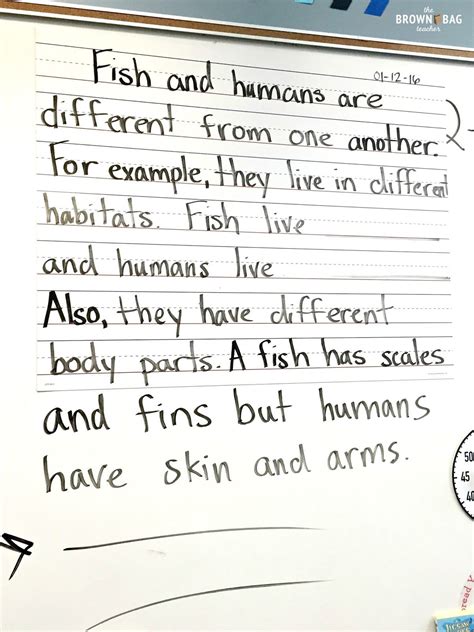 the
BROWN BAG
teacher
01-12-16
Fish and humans are
different from one another.
For example, they live in different
habitats. Fish live
and humans live
Also, they have different
body parts. A fish has scales
and fins but humans
have skin and arms.
50
45
40